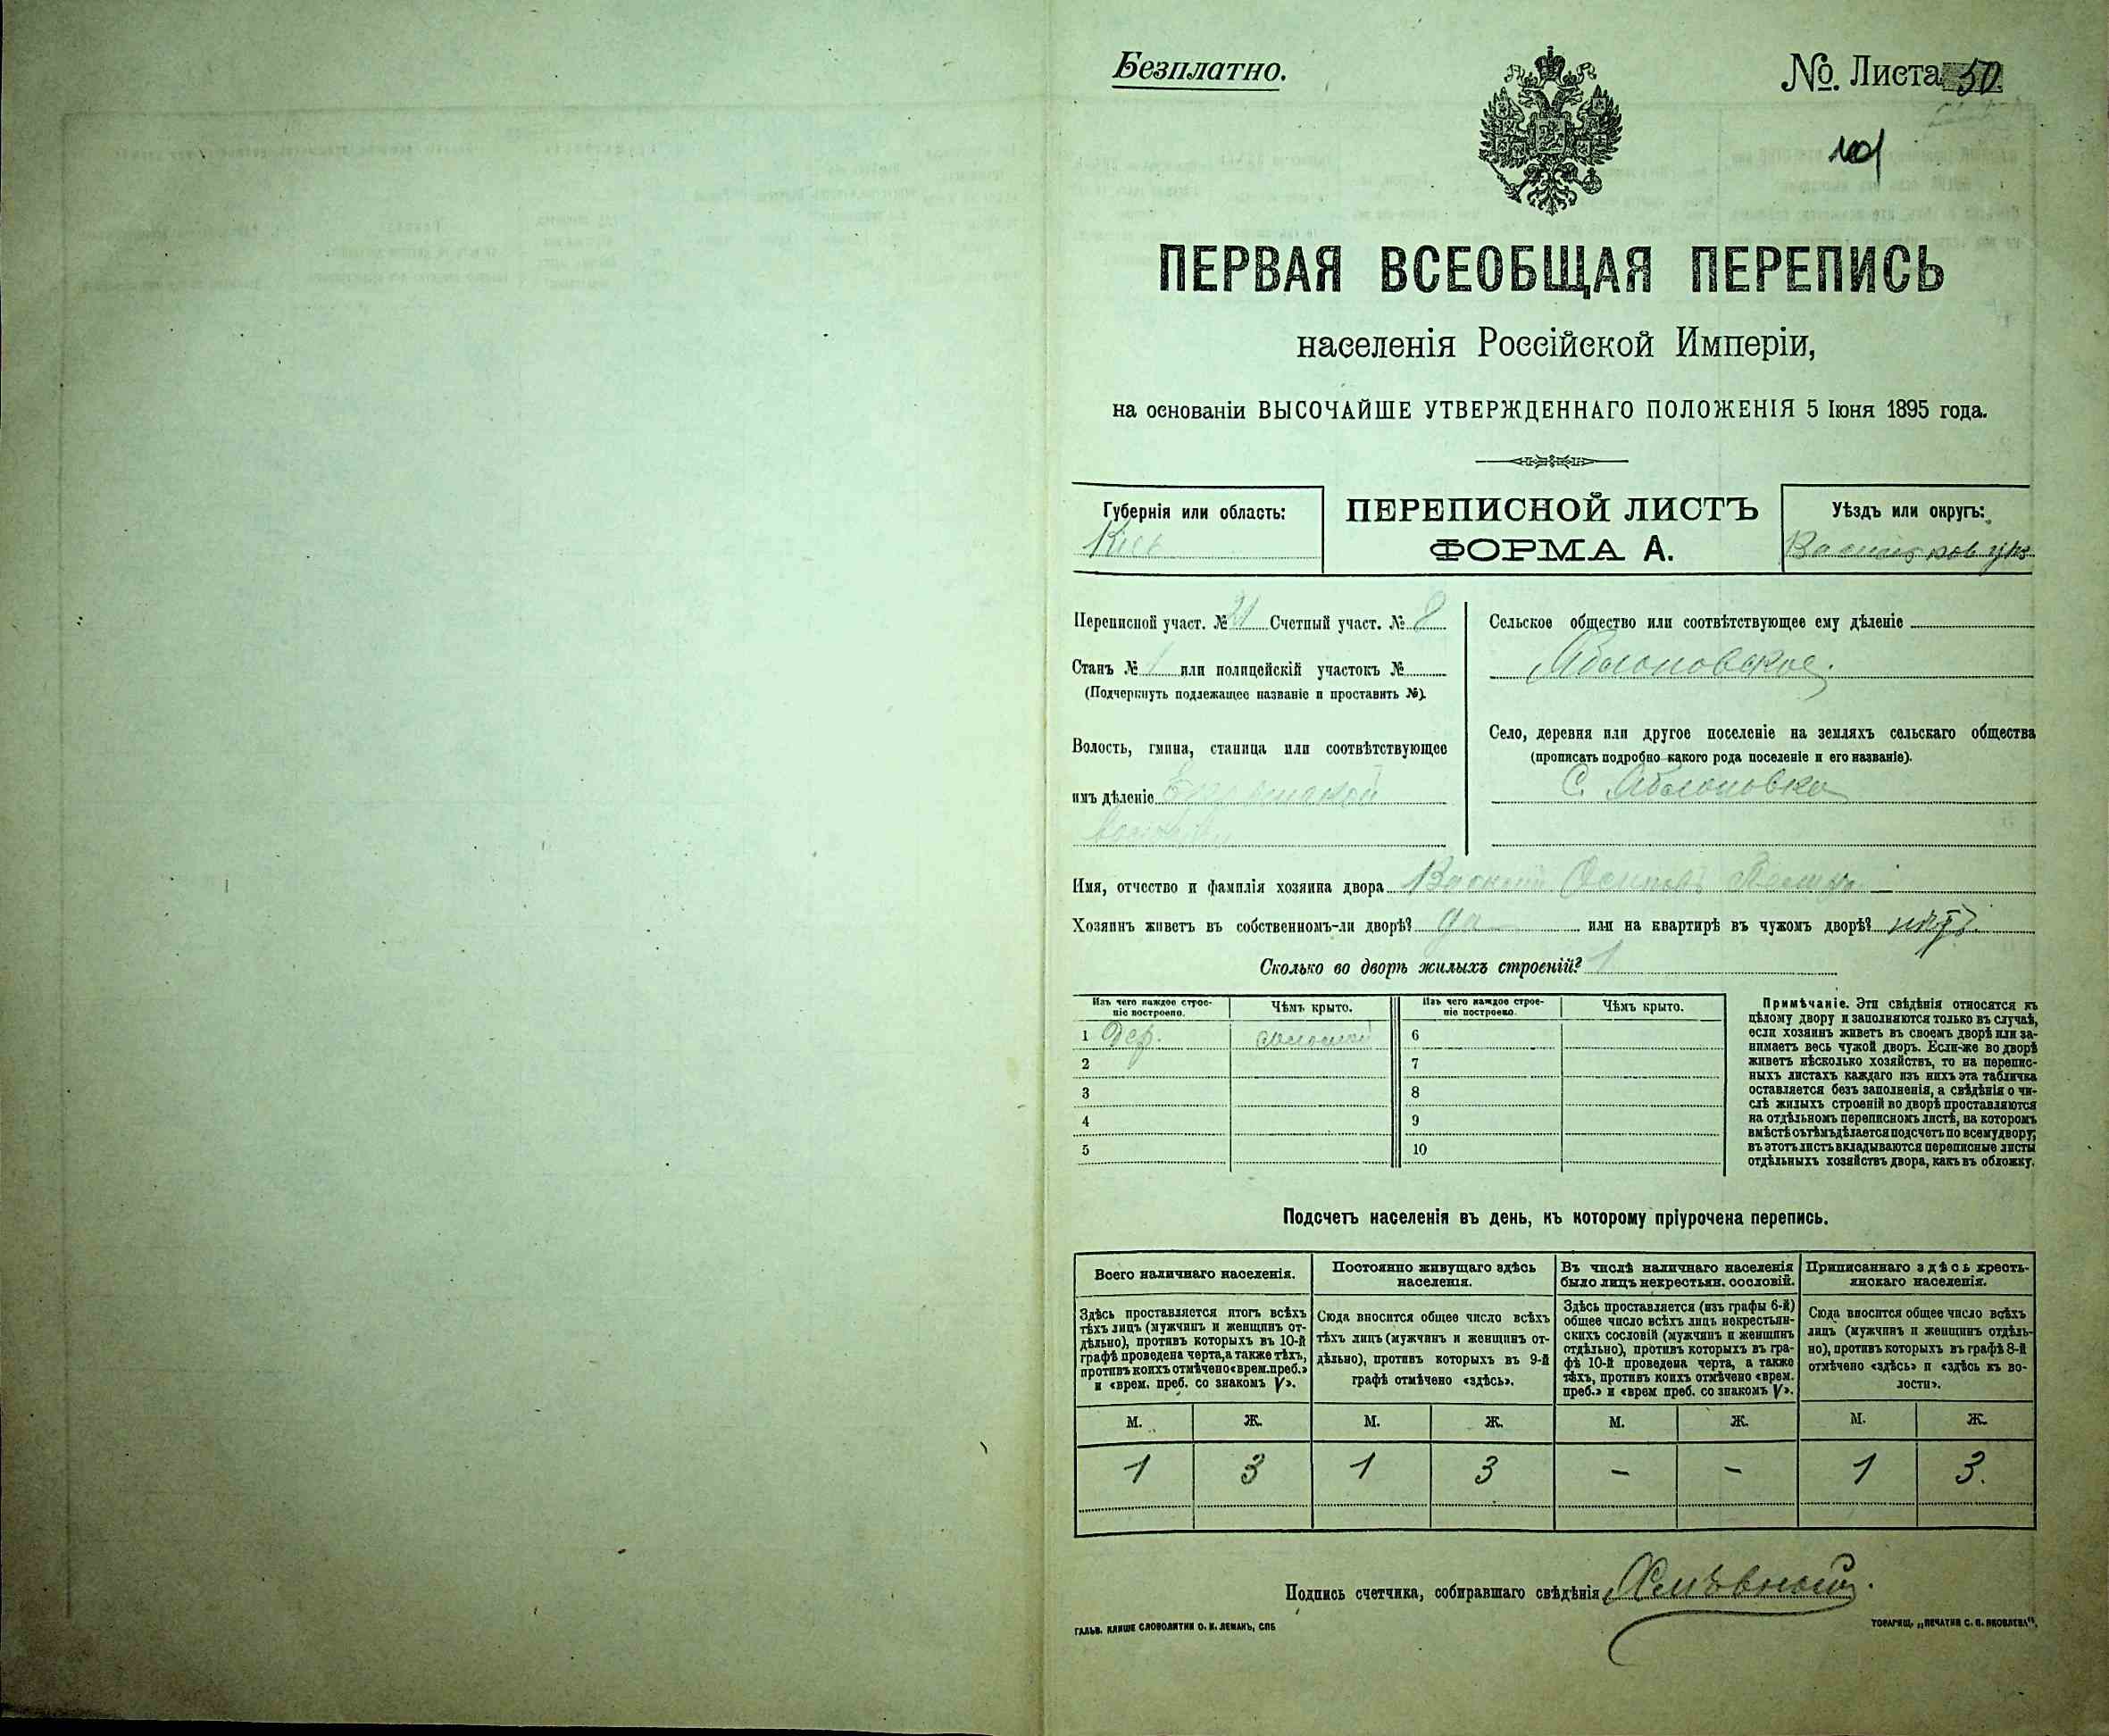 Безплатно.
№. Листа 50
101
ПЕРВАЯ ВСЕОБЩАЯ ПЕРЕПИСЬ
населенія Россійской Имперіи,
на основаніи ВЫСОЧАЙШЕ УТВЕРЖДЕННАГО ПОЛОЖЕНІЯ 5 Іюня 1895 года.
Губернія или область:
Кіев
ПЕРЕПИСНОЙ ЛИСТЪ
ФОРМА А.
Уѣздъ или округъ:
Переписной участ. № 21 Счетный участ. № 8
Станъ № 1 или полицейскій участокъ №
(Подчеркнуть подлежащее названіе и проставить №).
Волость, гмина, станица или соотвѣтствующее
имъ дѣленіе
Сельское общество или соотвѣтствующее ему дѣленіе
Яблоновское.
Село, деревня или другое поселеніе на земляхъ сельскаго общества
(прописать подробно какого рода поселеніе и его названіе).
С. Яблоновка
Имя, отчество и фамилія хозяина двора Осиповъ
Хозяинъ живетъ въ собственномъ-ли дворѣ? да или на квартирѣ въ чужомъ дворѣ? нѣтъ
Сколько во дворѣ жилыхъ строеній? 1
Изъ чего каждое строе-
ніе построено.
Чѣмъ крыто.
Изъ чего каждое строе-
ніе построено.
Чѣмъ крыто.
1 Дер. соломой 6
2 7
3 8
4 9
5 10
Примѣчаніе. Эти свѣдѣнія относятся къ
цѣлому двору и заполняются только въ случаѣ,
если хозяинъ живетъ въ своемъ дворѣ или за-
нимаетъ весь чужой дворъ. Если-же во дворѣ
живетъ нѣсколько хозяйствъ, то на перепис-
ныхъ листахъ каждаго изъ нихъ эта табличка
оставляется безъ заполненія, а свѣдѣнія о чи-
слѣ жилыхъ строеній во дворѣ проставляются
на отдѣльномъ переписномъ листѣ, на которомъ
вмѣстѣ съ тѣмъ дѣлается подсчетъ по всему двору;
въ этотъ листъ вкладываются переписные листы
отдѣльныхъ хозяйствъ двора, какъ въ обложку.
Подсчетъ населенія въ день, къ которому пріурочена перепись.
Всего наличнаго населенія.
Здѣсь проставляется итогъ всѣхъ
тѣхъ лицъ (мужчинъ и женщинъ от-
дѣльно), противъ которыхъ въ 10-й
графѣ проведена черта, а также тѣхъ,
противъ коихъ отмѣчено «врем. преб.»
и «врем. преб. со знакомъ V».
Постоянно живущаго здѣсь
населенія.
Сюда вносится общее число всѣхъ
тѣхъ лицъ (мужчинъ и женщинъ от-
дѣльно), противъ которыхъ въ 9-й
графѣ отмѣчено «здѣсь».
Въ числѣ наличнаго населенія
было лицъ некрестьян. сословій.
Здѣсь проставляется (изъ графы 6-й)
общее число всѣхъ лицъ некрестьян-
скихъ сословій (мужчинъ и женщинъ
отдѣльно), противъ которыхъ въ гра-
фѣ 10-й проведена черта, а также
тѣхъ, противъ коихъ отмѣчено «врем.
преб.» и «врем преб. со знакомъ V».
Приписаннаго здѣсь кресть-
янскаго населенія.
Сюда вносится общее число всѣхъ
лицъ (мужчинъ и женщинъ отдѣль-
но), противъ которыхъ въ графѣ 8-й
отмѣчено «здѣсь» и «здѣсь въ во-
лости».
М. Ж. М. Ж. М. Ж. М. Ж.
1 3 1 3 - - 1 3.
Подпись счетчика, собиравшаго свѣдѣнія
ГАЛЬВ. КЛИШЕ СЛОВОЛИТНИ О. И. ЛЕМАНЪ, СПБ
ТОВАРИЩ. „ПЕЧАТНЯ С. П. ЯКОВЛЕВА“.